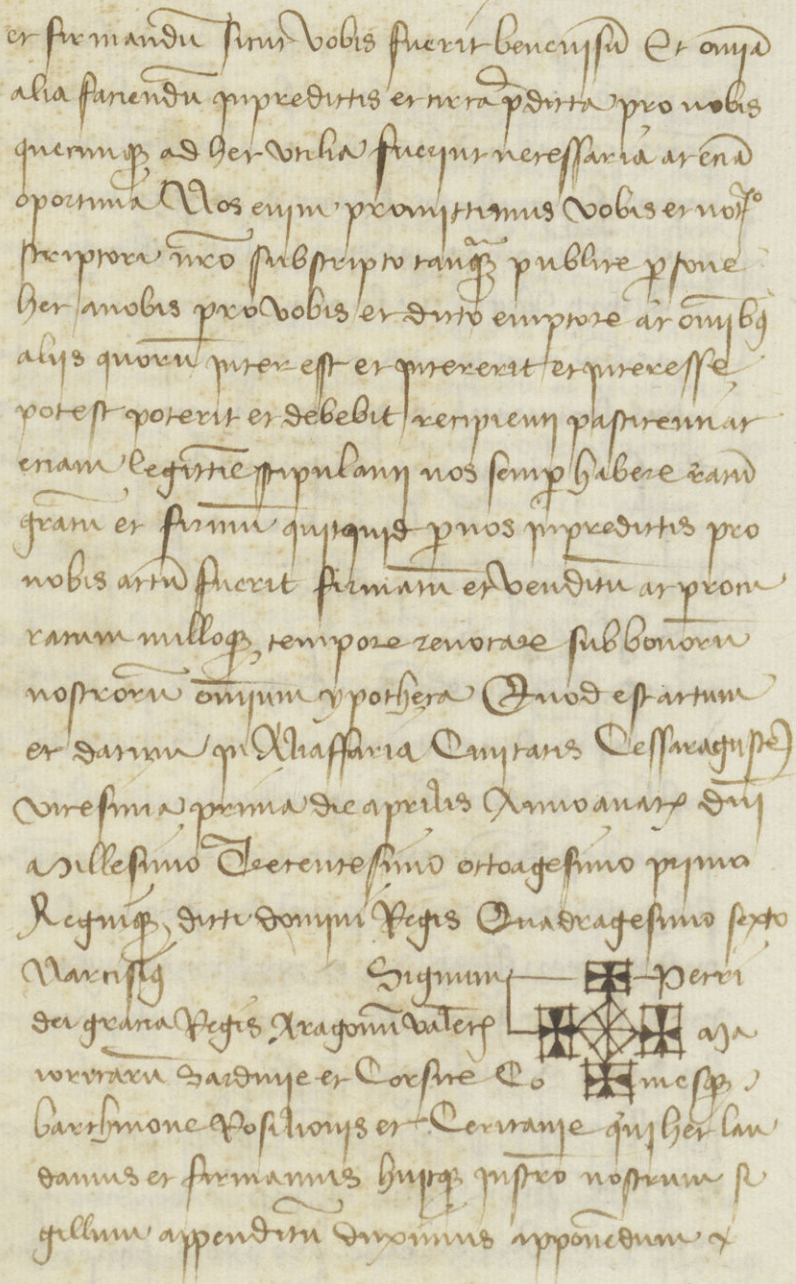 et firmandū sicut vobis fuerit benevisū Et om̄ia
alia faciendū in predictis et circa p̄dicta pro nobis
quecunqȝ ad hec utilia fuerint necessaria ac eciā
oportuna Nos enim promittimus vobis et not̄io
scriptori nr̄o subscripto tanqȝ publice ꝑsone
hec a nobis pro vobis et dicto emptore ac om̄ibȝ
aliis quorū interest et intererit et interesse
potest poterit et debebit recipienti pascicenti ac
eciam legittīe stipulanti nos semꝑ habere ratū
gratū et firmū quitquid ꝑ vos in predictis pro
nobis actū fuerit firmatū et venditū ac procu
ratum nulloqȝ tempore revocare sub bonorū
nostrorū om̄ium ypotheca Quod est actum
et datum in Aliaffaria Civitatis Cessarauguste
vicesima prima die aprilis Anno a natꝭ dn̄i
Millesimo Trecentesimo octoagesimo primo
Regniqȝ dicti domini Regis Quadragesimo sexto
Narcisiꝰ Signum Petri
dei gracia Regis Aragonū valencꝭ Ma
ioricarū Sardinie et Corsice Co mesqȝ
barchinone Rosilionis et Ceritanie qui hec lau
damus et firmamus huicqȝ instrō nostrum si
gillum appenditū duximus apponēdum